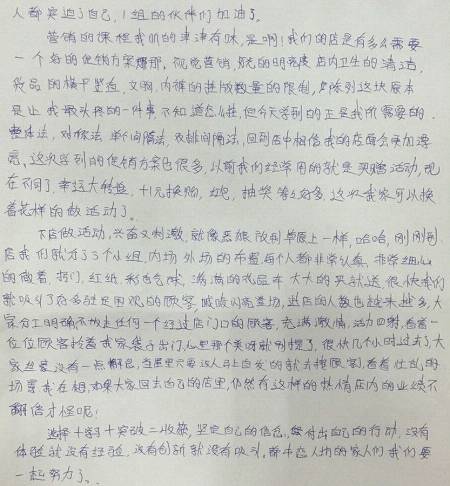 人都突迫了自己，1组的伙伴们加油了。
营销的课程我听的津津有味，是啊！我们的店是有多么需要
一个好的促销方案，视觉营销，陈列的明亮度，店内卫生的清洁，
货品的横平竖直，文胸，内裤的挂版数量的限制，陈列这块原本
是让我最头疼的一件事不知道怎么挂，但今天学到的正是我所需要的，
整体法，对称法，单个间隔法，双排间隔法，回到店中相信我的店面会更加漂
亮，这次学到的促销方案也很多，以前我们经常用的就是买赠活动，现
在不同了，幸运大转盘，+1元换购，红包，抽奖等等好多，这次我家可以换
着花样的做活动了。
下店做活动，兴奋又刺激，就像恶狼放到草原上一样，哈哈，刚刚到
店我们就分了3个小组，内场外场的布置每个人都非常认真，非常细心
的做着，拱门，红纸，彩色气球，满满的礼品和大大的买就送，很快我们
就吸引了在多驻足围观的顾客，喊喊闪亮登场，进店的人数也越来越多，大
家分工明确不放走任何一个经过店门口的顾客，充满激情，活力四射，看着一
位位顾客拎着我家袋子出门，心里那个美呀就别提了，很快几个小时过去了，大
家丝毫没有一点懈怠，店里只要没人马上自发的就去搜顾客，看着壮观的
场景我在想，如果大家回去自己的店里，仍然有这样的热情店内的业绩不
翻倍才怪呢！
选择+学习+突破=收获，坚定自己的信念，付出自己的行动，没有
体验就没有经验，没有创新就没有吸引，都市恋人坊的家人们我们要
一起努力了。